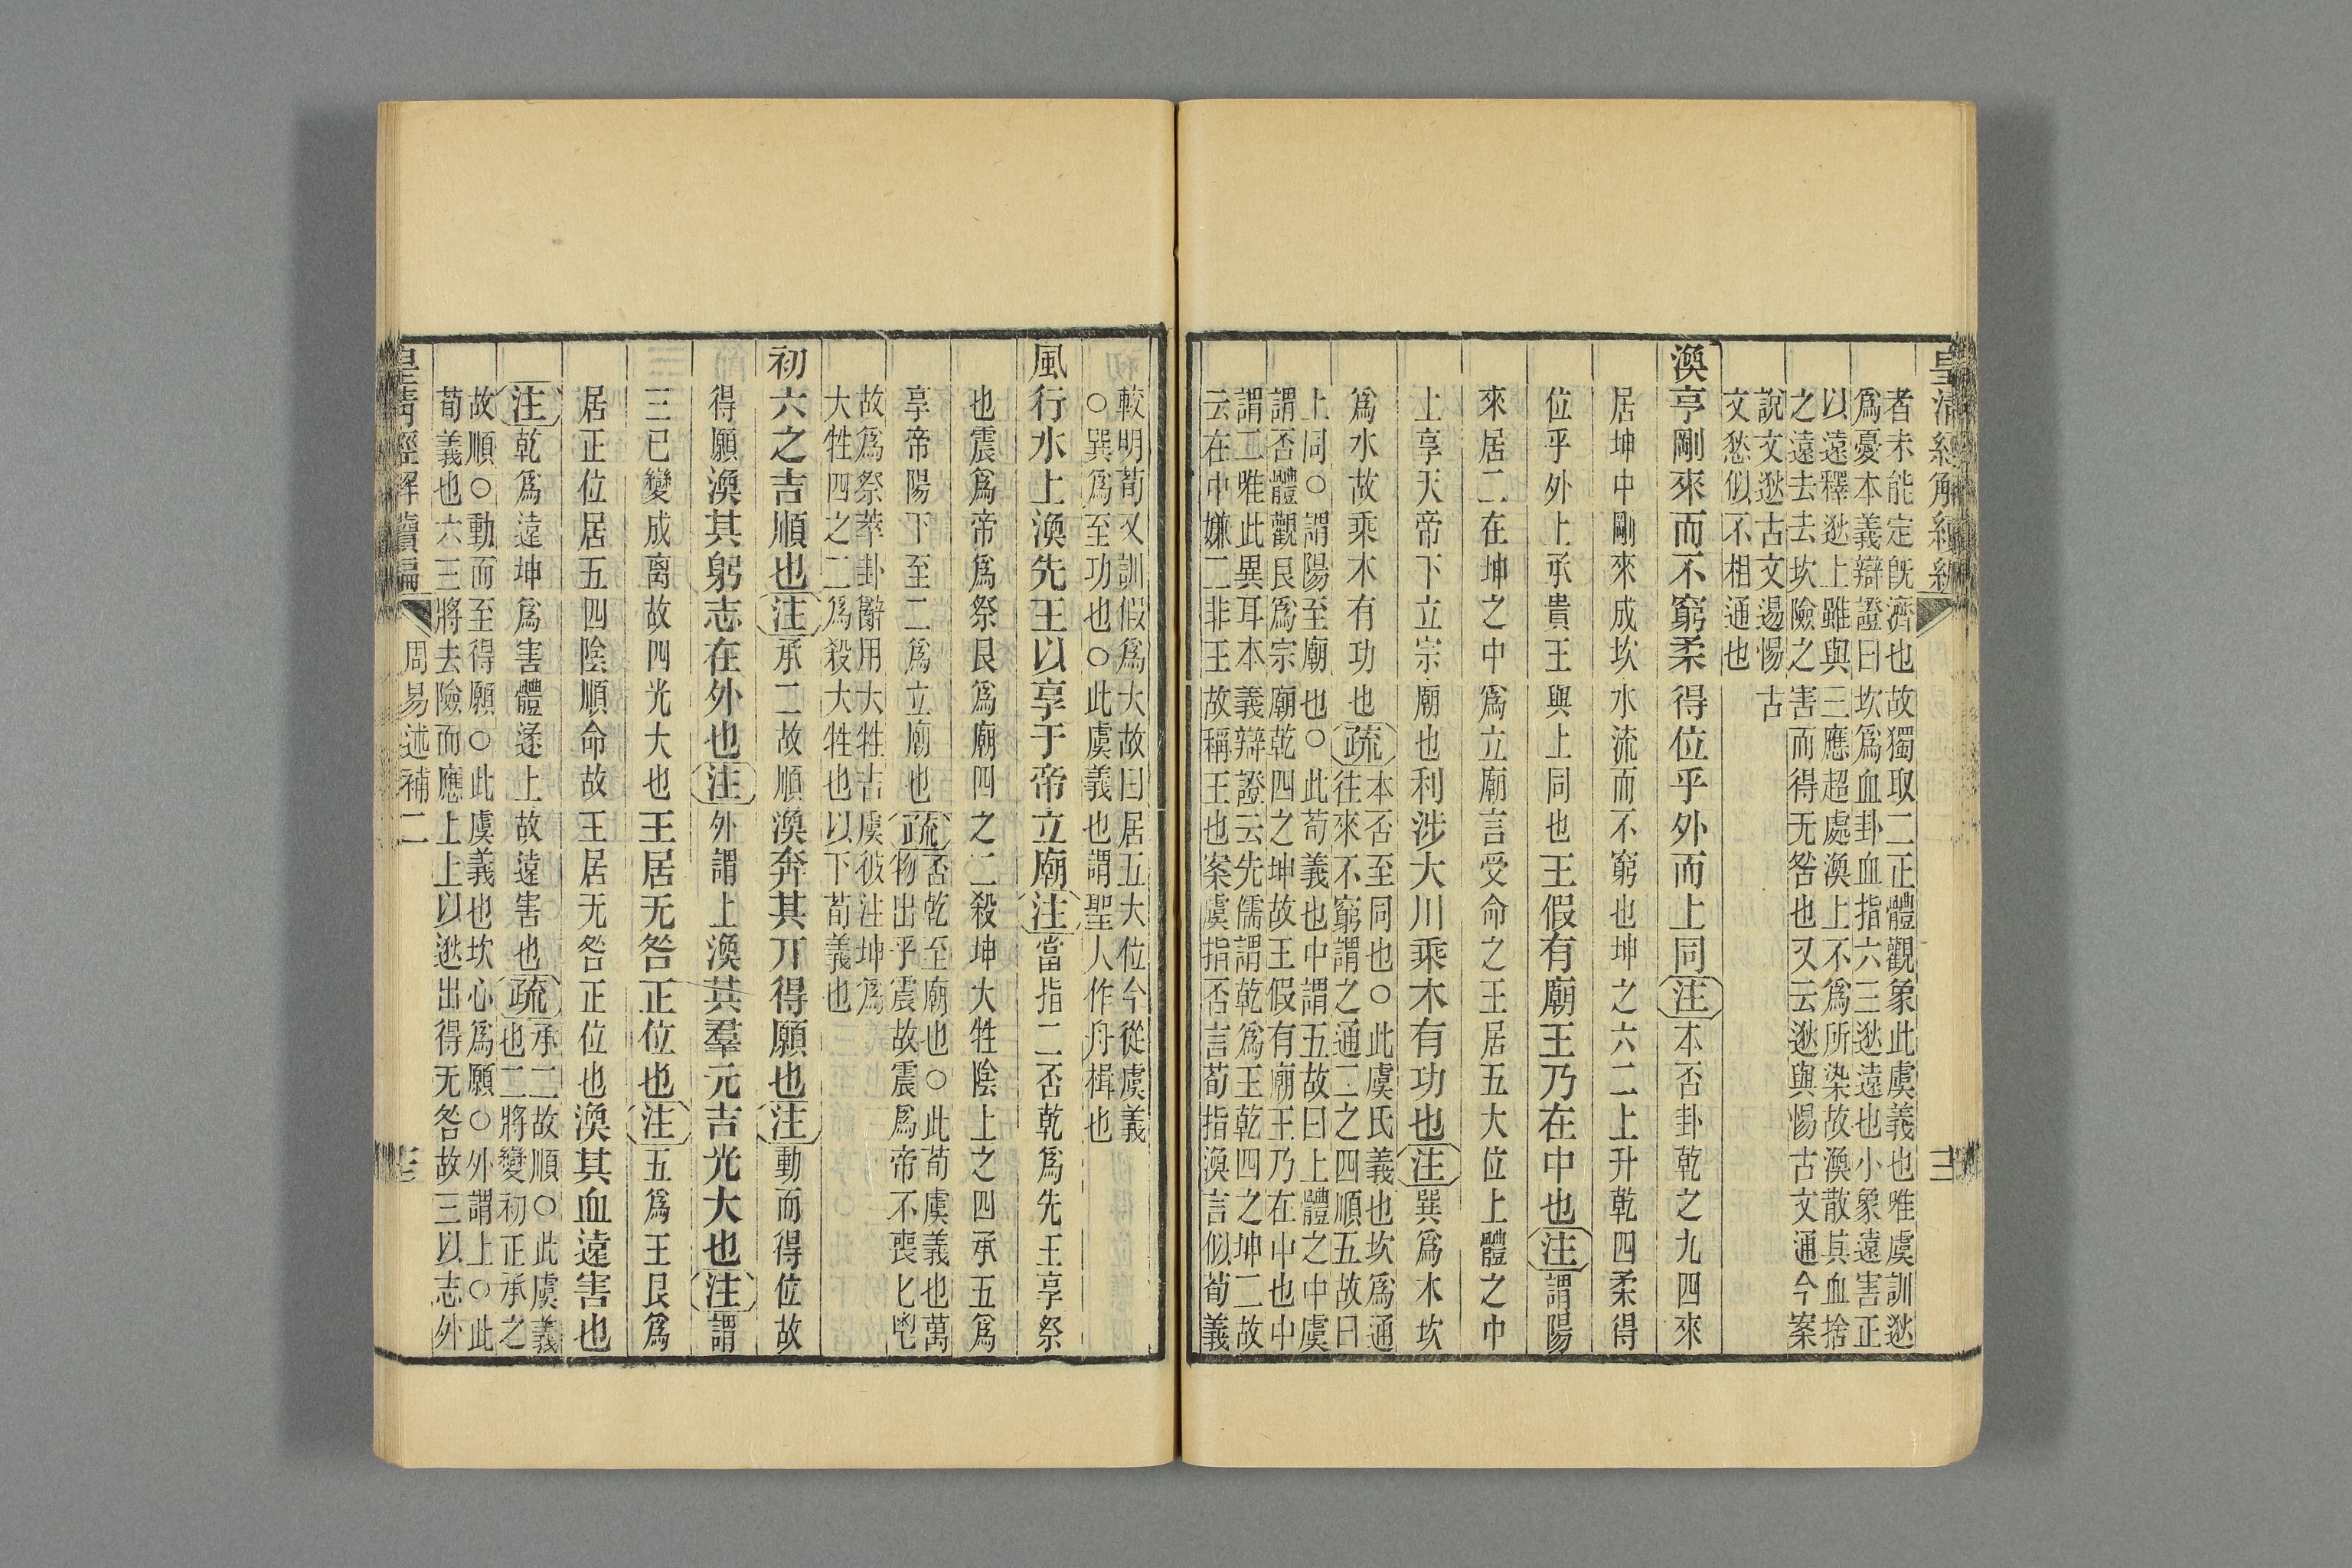 皇清經解續編
三
者未能定旣濟也故獨取二正體觀象此虞義也唯虞訓逖
爲憂本義辯證曰坎爲血卦血指六三逖遠也小象遠害正
以遠釋逖上雖與三應超處渙上不爲所染故渙散其血捨
之遠去去坎險之害而得无咎也又云逖與惕古文通今案
說文逖古文逷惕古
文愁似不相通也
渙亨剛來而不窮柔得位乎外而上同注本否卦乾之九四來
居坤中剛來成坎水流而不窮也坤之六二上升乾四柔得
位乎外上承貴王與上同也王假有廟王乃在中也注謂陽
來居二在坤之中爲立廟言受命之王居五大位上體之中
上享天帝下立宗廟也利涉大川乘木有功也注巽爲木坎
爲水故乘木有功也疏本否至同也○此虞氏義也坎爲通
往來不窮謂之通二之四順五故曰
上同○謂陽至廟也○此荀義也中謂五故曰上體之中虞
謂否體觀艮爲宗廟乾四之坤故王假有廟王乃在中也中
謂二唯此異耳本義辯證云先儒謂乾爲王乾四之坤二故
云在中嫌二非王故稱王也案虞指否言荀指渙言似荀義
較明荀又訓假爲大故曰居五大位今從虞義
○巽爲至功也○此虞義也謂聖人作舟楫也
風行水上渙先王以享于帝立廟注當指二否乾爲先王享祭
也震爲帝爲祭艮爲廟四之二殺坤大牲陰上之四承五爲
享帝陽下至二爲立廟也疏否乾至廟也○此荀虞義也萬
物出乎震故震爲帝不喪匕鬯
故爲祭萃卦辭用大牲吉虞彼注坤爲
大牲四之二爲殺大牲也以下荀義也
初六之吉順也注承二故順渙奔其丌得願也注動而得位故
得願渙其躬志在外也注外謂上渙其羣元吉光大也注謂
三已變成离故四光大也王居无咎正位也注五爲王艮爲
居正位居五四陰順命故王居无咎正位也渙其血遠害也
注乾爲遠坤爲害體遂上故遠害也疏承二故順○此虞義
也二將變初正承之
故順○動而至得願○此虞義也坎心爲願○外謂上○此
荀義也六三將去險而應上上以逖出得无咎故三以志外
皇清經解續編
周易述補二
三